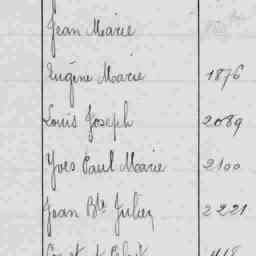 Jean Marie
Eugène Marie 1876
Louis Joseph 2089
Yves Paul Marie 2100
Jean Bte Julien 2221